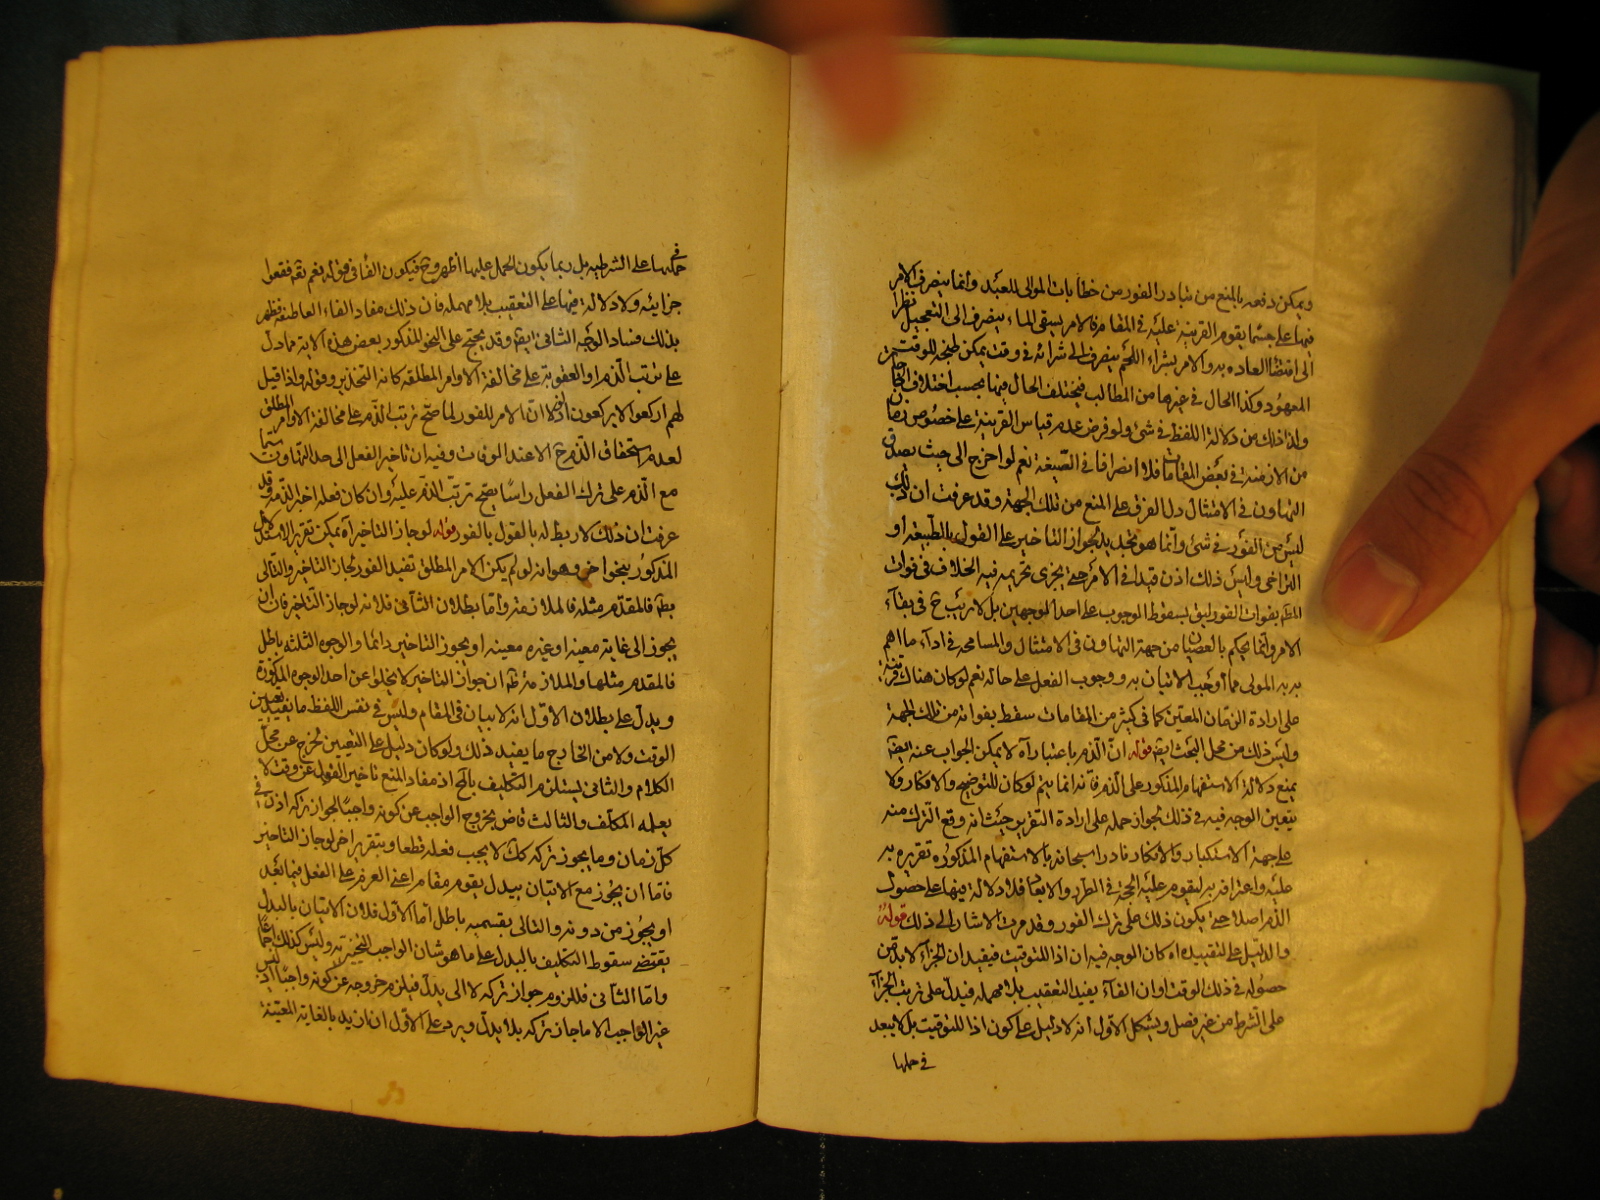 ويمكن دفعه بالمنع من تبادر الفور من خطابات الموالى للعبيد وانما ينصرف الامر
فيها على حسبما يقوم القرينة عليه في المقام فالامر بسقي الماء ينصرف الى التعجيل نظرا
الى اقتضاء العادة به والامر بشراء اللحم ينصرف الى شرائه في وقت يمكن طبخه للوقت
المعهود وكذا الحال في غيرها من المطالب فيختلف الحال فيها بحسب اختلاف
وليذ ذلك من دلالة اللفظ في شئ ولو فرض عدم قيام القرينة على خصوص زمان
من الازمنة في بعض المقامات فلا انصراف في الصيغة نعم لو اخرج الى حيث يصدق
التهاون في الامتثال دل العرف على المنع من تلك الجهة وقد عرفت ان ذلك
ليس من الفور في شئ وانما هو تحديد لجواز التاخير على القول بالطبيعة او
التراخى وليس ذلك اذن قيدا في الامر حتى يجرى تحريمه فيه الخلاف في فوات
المط بفوات الفور ليق بسقوط الوجوب على احد الوجهين بل لا ريب ح في بقاء
الامر وانما يحكم بالعصيان من جهة التهاون في الامتثال والمسامحة في اداء ما امر
به المولى مما اوجب الاتيان به ووجوب الفعل على حاله نعم لو كان هناك قرينة
على ارادة الزمان المعين كما في كثير من المقامات سقط بفواته من تلك الجهة
وليس ذلك من محل البحث ايضا قوله ان الذم باعتبار اه لا يمكن الجواب عنه ايضا
بمنع دلالة الاستفهام المذكور على الذم فانه انما يتم لو كان للتوضيح والانكار ولا
يتعين الوجه فيه في ذلك لجواز حمله على ارادة التقرير حيث انه وقع الترك منه
على جهة الاستكبار والانكار فاراد سبحانه بالاستفهام المذكور تقريره به
عليه واعترافه به ليقوم عليه الحجة في الطرد والابعاد فلا دلالة فيها على حصول
الذم اصلا حتى يكون ذلك على ترك الفور وقد مرت الاشارة الى ذلك قوله
والدليل على التقييد اه كان الوجه فيه ان اذا للتوقيت فيفيد ان الجزاء لا بد من
حصوله في ذلك الوقت او ان الفاء يفيد التعقيب بلا مهملة فيدل على ترتب الجزاء
على الشرط من غير فصل ويشكل الاول انه لا دليل على كون اذا للتوقيت بل لا يبعد
في حملها
في حملها على الشرطية بل ربما يكون الحمل عليها اظهر وح فيكون الفاء في قوله نعم تعه فقعوا
جزائية ولا دلالة فيها على التعقيب بلا مهملة فان ذلك مفاد الفاء العاطفة فظهر
بذلك فساد الوجه الثاني ايضا وقد يحتج على النحو المذكور بعض هذه الاية مما دل
على ترتب الذم او العقوبة على مخالفة الاوامر المطلقة كاية التحذير وقوله واذا قيل
لهم اركعوا لا يركعون اذ لولا ان الامر للفور لما صح ترتب الذم على مخالفة الاوامر المطلق
لعدم استحقاق الذم ح الا عند الوفات وفيه ان تاخير الفعل الى حد التهاون سيما
مع الذم على ترك الفعل راسا يصح ترتب الذم عليه وان كان فعله اخر الذمه وقد
عرفت ان ذلك لا ربط له بالقول بالفور قوله لو جاز التاخير اه يمكن تقرير الاستدلال
المذكور بنحو اخر وهو انه لو لم يكن الامر المطلق تفيد الفور لجاز التاخير والتالى
بط فالمقدم مثله فالملازمة واما بطلان الثاني فلانه لو جاز التاخير فان
يجوز الى غاية معينه او غيره معينه او يجوز التاخير دائما والوجوه الثلثة باطل
فالمقدم مثلها والملازمة ظ ان جواز التاخير لا يخلوا عن احد الوجوه المذكورة
ويدل على بطلان الاول انه لا بيان في المقام وليس في نفس اللفظ ما يفيد تعيين
الوقت ولا من الخارج ما يفيد ذلك ولو كان دليل على التعيين لخرج عن محل
الكلام والثاني يستلزم التكليف بالمح اذ مفاد المنع تاخير الفعل عن وقت لا
يعلمه المكلف والثالث قاض بخروج الواجب عن كونه واجبا لجواز تركه اذن في
كل زمان وما يجوز تركه كك لا يجب فعله قطعا وبتقرير اخر لو جاز التاخير
فاما ان يجوز مع الاتيان ببدل يقوم مقامه اعنى العزم على الفعل فيما بعد
او يجوز من دونه والتالى بقسميه باطل اما الاول فلان الاتيان بالبدل
يقتضى سقوط التكليف بالبدل على ما هو شان الواجب التخييرى وليس كذلك اجماعا
واما الثاني فللزوم جواز تركه لا الى بدل فيلزم خروجه عن كونه واجبا اذ ليس
غير الواجب الا ما جاز تركه بلا بدل ويرد على الاول ان ازيد بالغاية المعينة